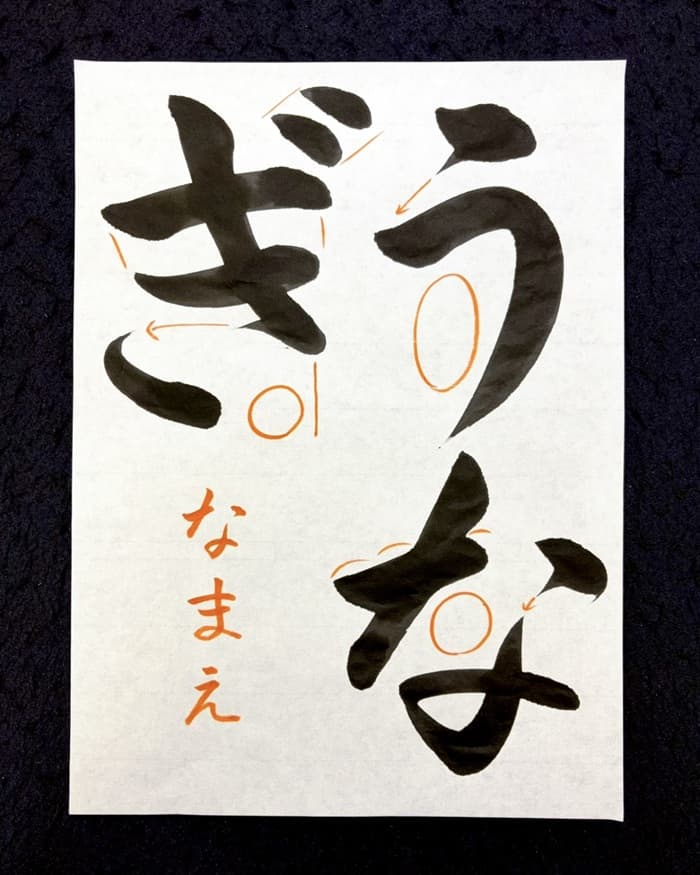 うな
ぎ
なまえ